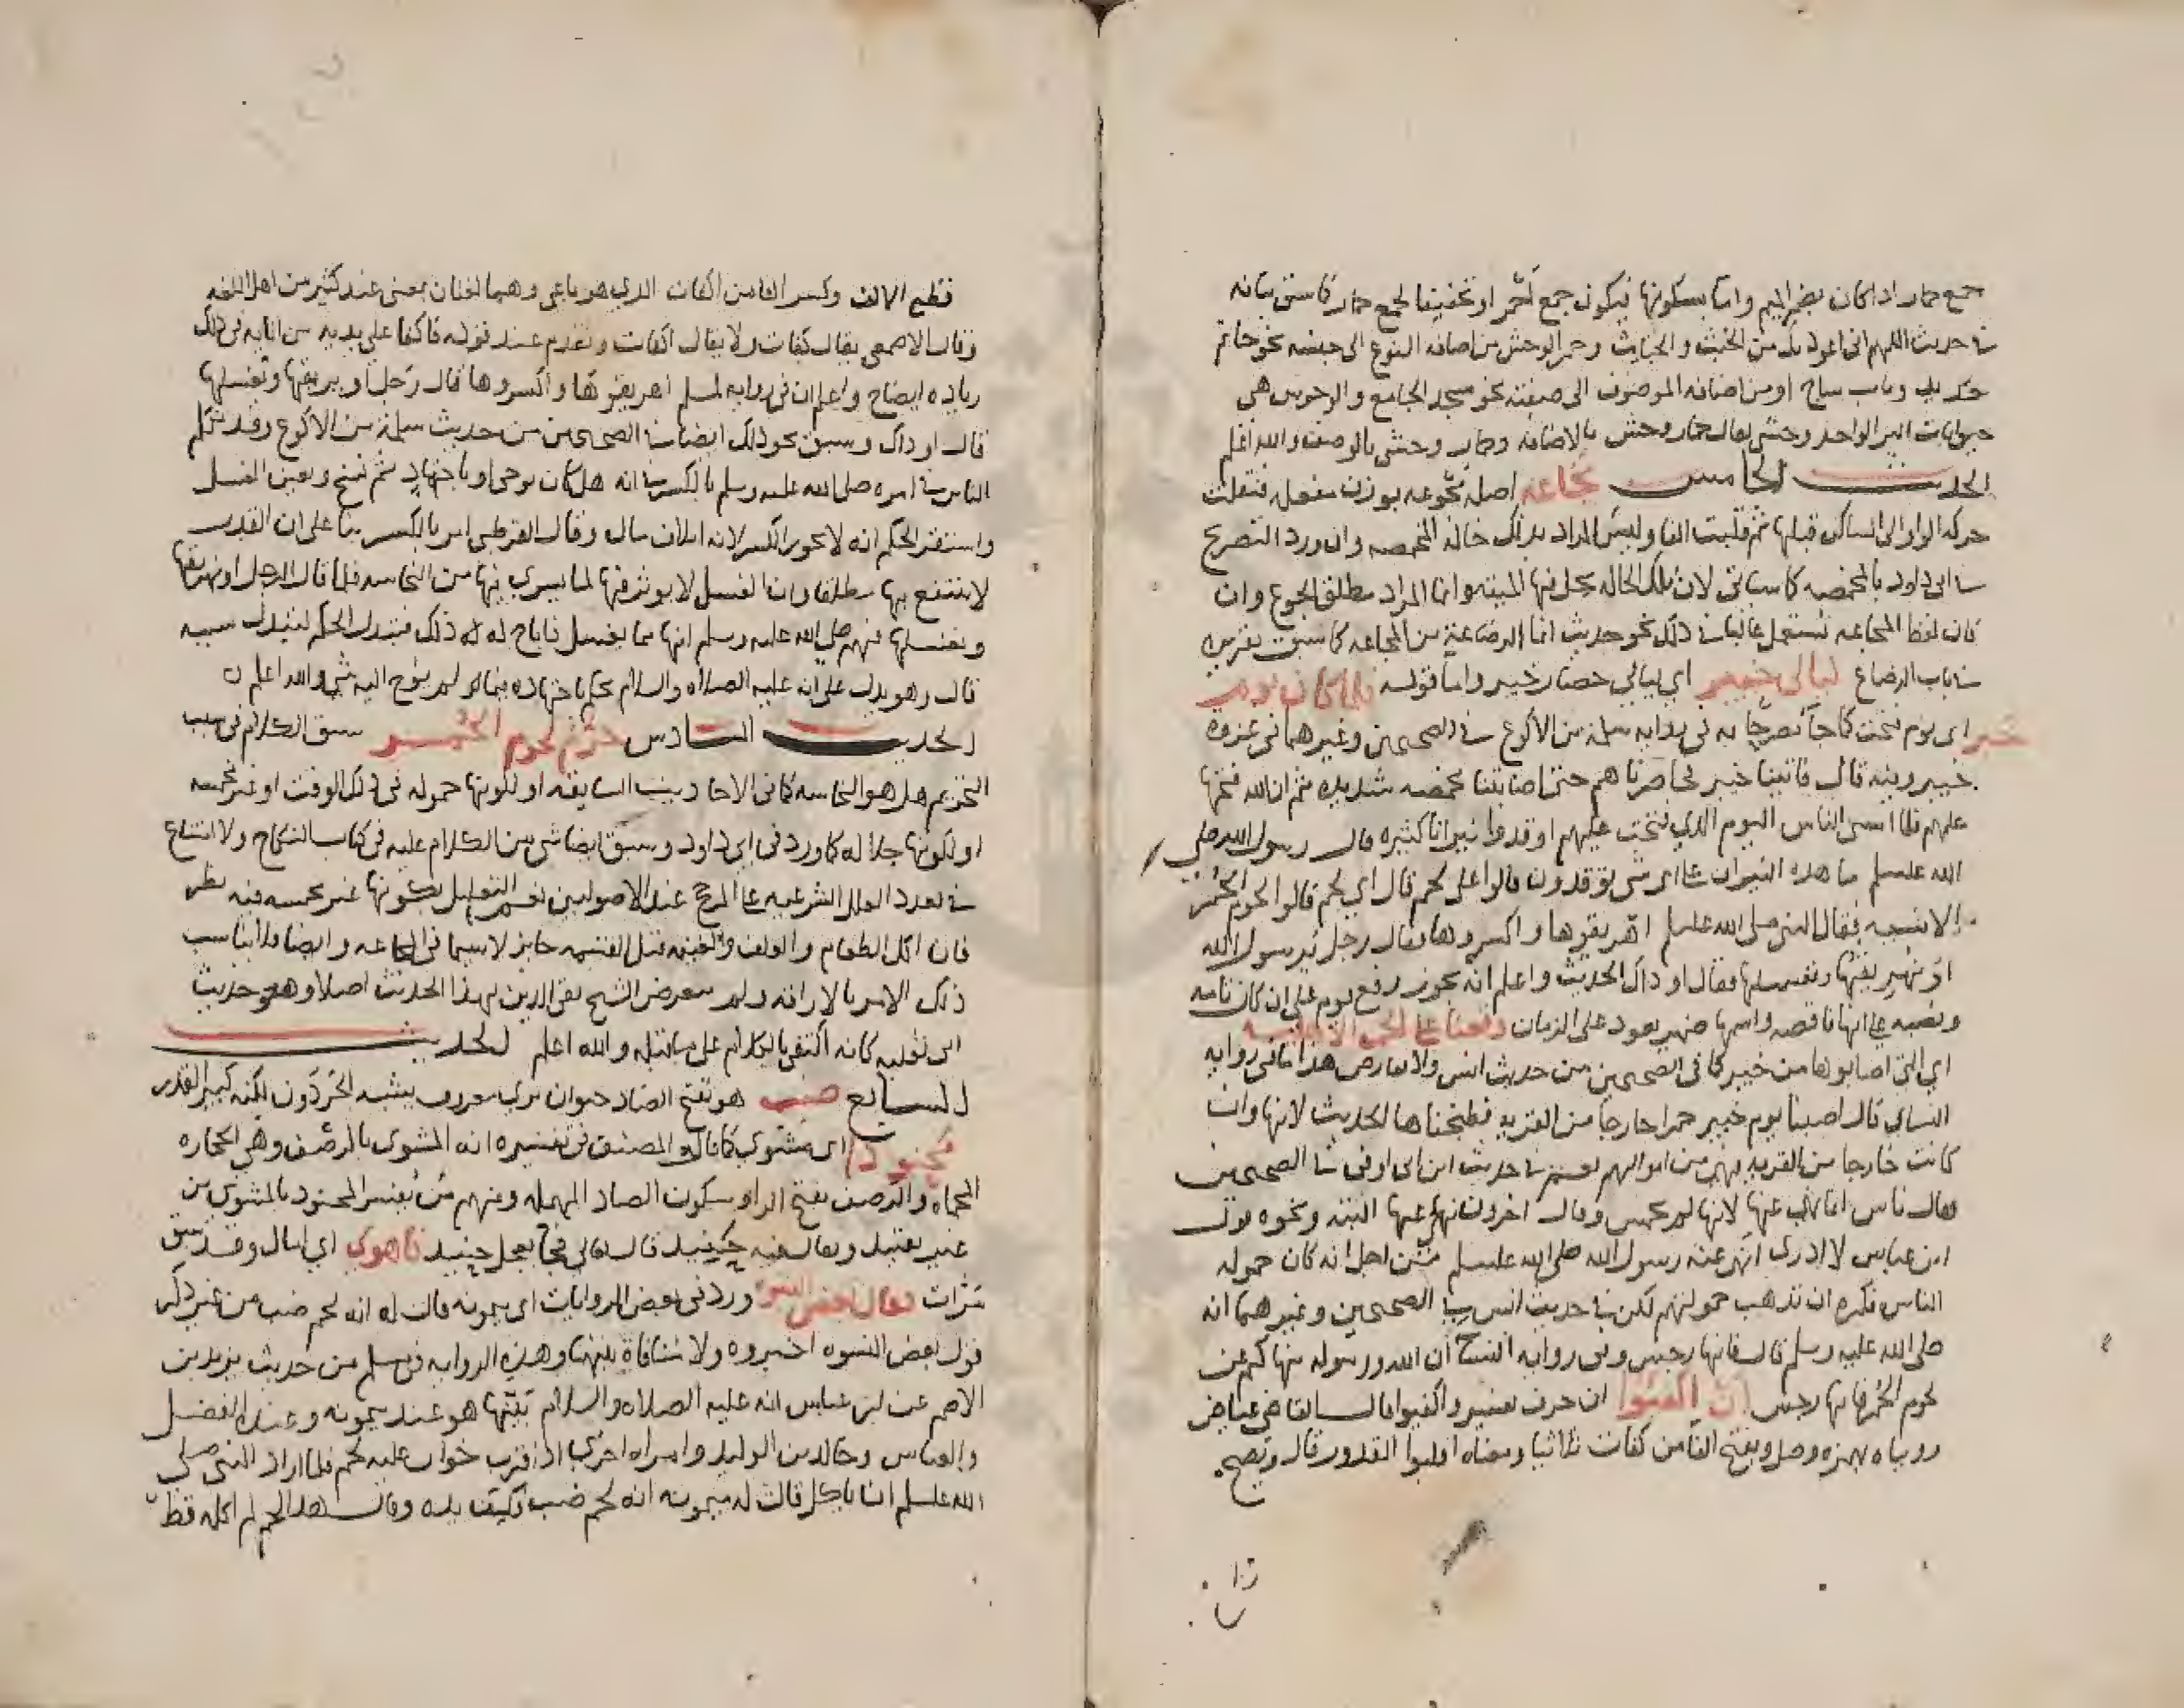 جمع حمار اذا كان بضم الميم واما بسكونها فيكون جمع احمر او تخفيفا لجمع حمار كما سبق بيانه
في حديث اللهم اني اعوذ بك من الخبث والخبايث وحمر الوحش من اضافه النوع الى جنسه نحو خاتم
حديد وباب ساج او من اضافه الموصوف الى صفته نحو مسجد الجامع والوحوش هي
حيوانات البر الواحد وحشي يقال حمار وحش بالاضافه وحمار وحشي بالوصف والله اعلم
الحديث الخامس مجاعه اصله مجوعه بوزن مفعله فنقلت
حركه الواو الى الساكن قبلها ثم قلبت الفا وليس المراد بذلك حاله المخمصه وان ورد التصريح
في ابي داود بالمخمصه كما سياتي لان تلك الحاله يحل فيها الميته وانما المراد مطلق الجوع وان
كان لفظ المجاعه يستعمل غالبا في ذلك نحو حديث انما الرضاعة من المجاعه كما سبق تقريره
في باب الرضاع ليالي خيبر اي ليالي حصار خيبر واما قوله فلما كان يوم
خيبر اي يوم فتحت كما جا مصرحا به في روايه سلمه بن الاكوع في الصحيحين وغيرهما في غزوة
خيبر وفيه قال فاتينا خيبر فحاصرناهم حتى اصابتنا مخمصه شديده ثم ان الله فتحها
عليهم فلما امسى الناس اليوم الذي فتحت عليهم اوقدوا نيرانا كثيره فقال رسول الله صلى
الله عليه وسلم ما هذه النيران على اي شي توقدون قالوا على لحم قال اي لحم قالوا لحوم الحمر
الانسيه فقال النبي صلى الله عليه وسلم اهريقوها واكسروها فقال رجل يرسول الله
او نهريقها ونغسلها فقال او ذاك الحديث واعلم انه يجوز رفع يوم على ان كان تامه
ونصبه على انها ناقصه واسمها ضمير يعود على الزمان وقعنا على الحمر الاهليه
اي التي اصابوها من خيبر كما في الصحيحين من حديث انس ولا يعارض هذا ما في روايه
النساي قال اصبنا يوم خيبر حمرا خارجا من القريه فطبخناها الحديث لانها وان
كانت خارجا من القريه فهي من اموالهم نعم في حديث ابن ابي اوفى في الصحيحين
فقال ناس انما نهى عنها لانها لم تخمس وقال اخرون نهى عنها البته ونحوه قول
ابن عباس لا ادري انهى عنه رسول الله صلى الله عليه وسلم من اجل انه كان حموله
الناس فكره ان تذهب حمولتهم لكن في حديث انس في الصحيحين وغيرهما انه
صلى الله عليه وسلم قال فانها رجس وفي روايه النسخ ان الله ورسوله ينهاكم عن
لحوم الحمر فانها رجس ان اكفئوا ان حرف تفسير واكفيوا قال القاضي عياض
رويناه بهمزه وصل وبفتح الفا من كفات ثلاثيا ومعناه اقلبوا القدور قال ويصح
قطع الالف وكسر الفا من اكفات الذي هو رباعي وهما لغتان بمعنى عند كثير من اهل اللغه
وقال الاصمعي يقال كفات ولا يقال اكفات وتقدم عند قوله فاكفا على يديه من انايه في ذلك
زياده ايضاح واعلم ان في روايه لمسلم اهريقوها واكسروها قال رجل او يهريقها وتغسلها
قال او ذاك وسبق نحو ذلك ايضا في الصحيحين من حديث سلمة بن الاكوع وقد تكلم
الناس في امره صلى الله عليه وسلم بالكسر في انه هل كان بوحي او باجتهاد ثم نسخ وتعين الغسل
واستقر الحكم انه لا يجوز الكسر لانه اتلاف مال وقال القرطبي امر بالكسر بنا على ان القدر
لا ينتفع بها مطلقا وان الغسل لا يوثر فيها لما يسري فيها من النجاسه فلما قال الرجل او نهريقها
ونغسلها فهم صلى الله عليه وسلم انها مما يغسل فاباح له ذلك فتبدل الحكم لتبدل سببه
قال وهو يدل على انه عليه الصلاه والسلام يحكم باجتهاده فيما لم يوح اليه شي والله اعلم
الحديث السادس حرم لحوم الحمر سبق الكلام في سبب
التحريم هل هو النجاسه كما في الاحاديث السابقه او لكونها حموله في ذلك الوقت او غير مخمسه
او لكونها جلاله كما ورد في ابي داود وسبق ايضا شي من الكلام عليه في كتاب النكاح ولا امتناع
في تعدد العلل الشرعيه على المرجح عند الاصوليين نعم التعليل بكونها غير مخمسه فيه نظر
فان اكل الطعام والعلف ونحوه قبل القسمه جايز لا سيما في المجاعه وايضا فلا يناسب
ذلك الامر بالاراقه ولم يتعرض الشيخ تقي الدين لهذا الحديث اصلا وهو حديث
ابي ثعلبه كانه اكتفى بالكلام على ما قبله والله اعلم الحديث
السابع ضب هو بفتح الضاد حيوان بري معروف يشبه الحردون لكنه كبير القدر
محنوذ اي مشوي كما قال المصنف في تفسيره انه المشوي بالرضف وهي الحجاره
المحماه والرضف بفتح الرا وسكون الضاد المهمله ومنهم من يفسر المحنوذ بالمشوي من
غير تقييد ويقال فيه حنيذ قال تعالى فجا بعجل حنيذ فاهوى اي امال وقد سبق
مرات فقال بعض النسوه ورد في بعض الروايات اي ميمونه قالت له انه لحم ضب من غير ذكر
قول بعض النسوه اخبروه ولا منافاة بينهما وهذه الروايه في مسلم من حديث يزيد بن
الاصم عن ابن عباس انه عليه الصلاه والسلام بينما هو عند ميمونه وعنده الفضل
بن العباس وخالد بن الوليد وامراه اخرى اذ قرب خوان عليه لحم فلما اراد النبي صلى
الله عليه وسلم ان ياكل قالت له ميمونه انه لحم ضب فكف يده وقال هذا لحم لم اكله قط